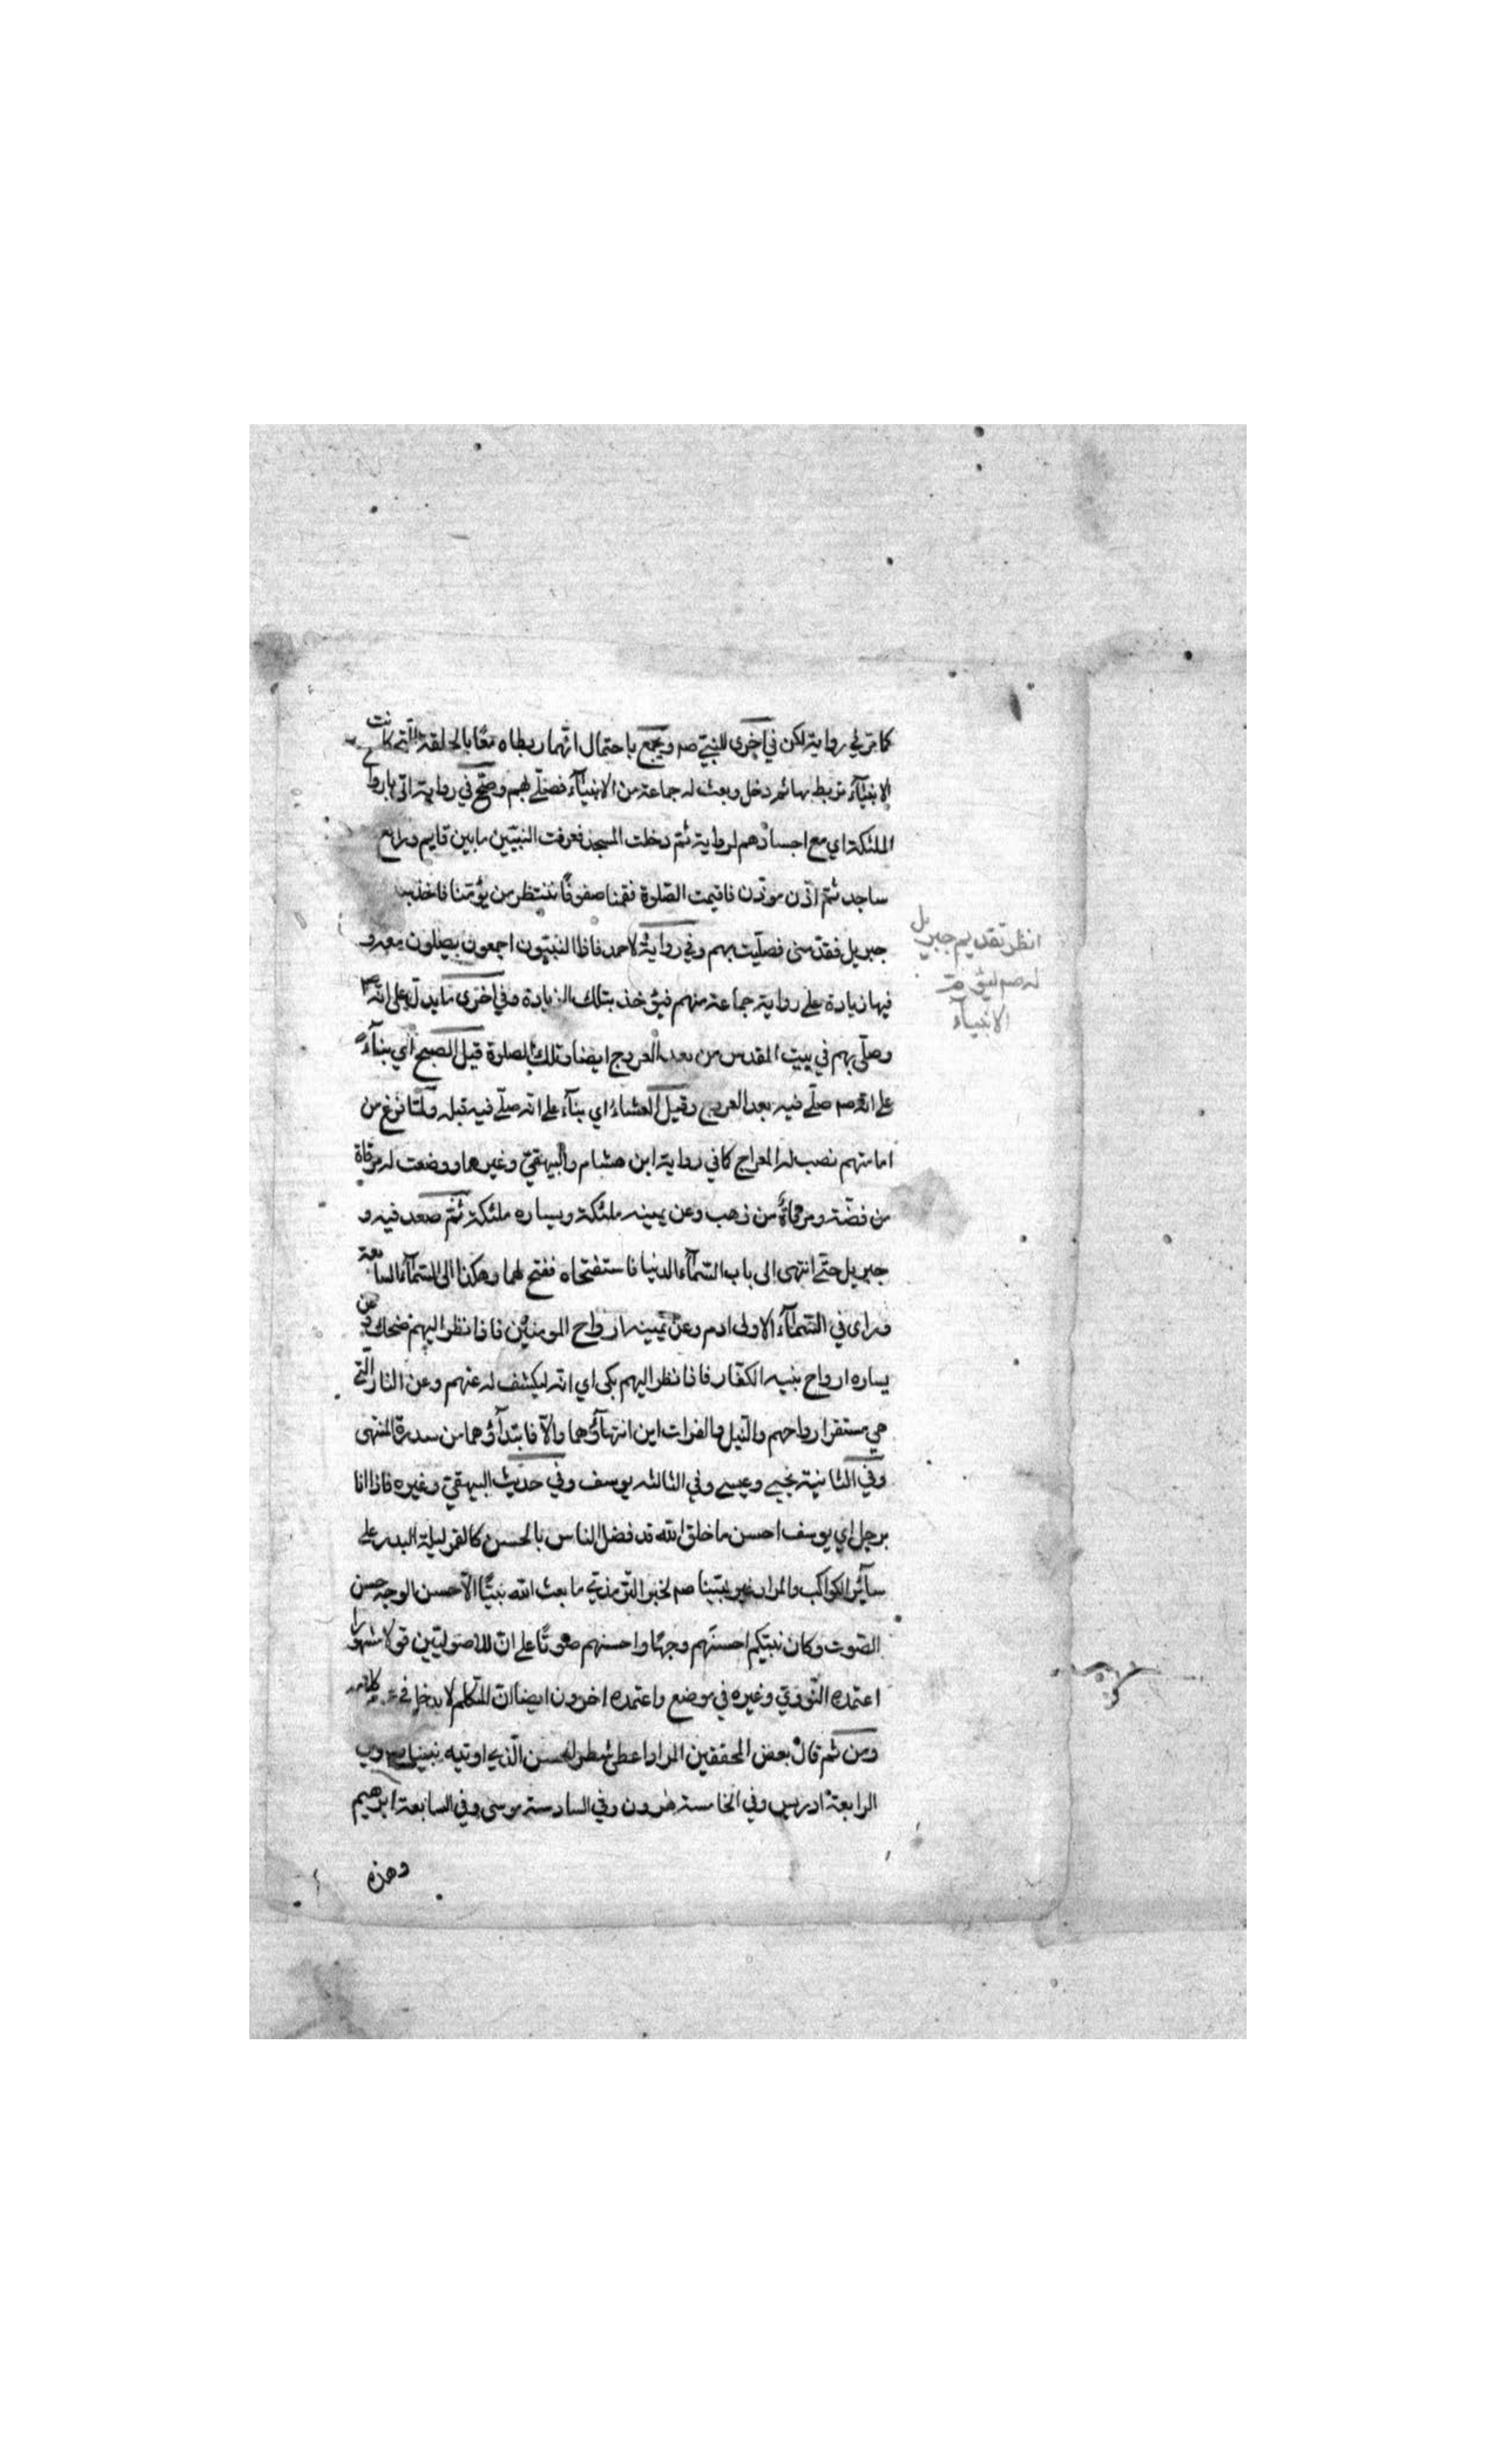 كما مر في رواية لكن في اخرى للنبي صم ويجمع باحتمال انهما ربطاه معًا بالحلقة التي كانت
الانبيآء تربط بها ثم دخل وبعث له جماعة من الانبيآء فصلّى بهم وصحّ في رواية اتى بارواح
الملئكة اي مع اجسادهم لرواية ثمّ دخلت المسجد فعرفت النبيّين مابين قايم وراكع
ساجد ثمّ اذّن موذّن فاقيمت الصّلوة فقمنا صفوفًا ننتظر من يؤمّنا فاخذ بيد
جبريل فقدّمنى فصلّيت بهم وفي رواية لاحمد فاذا النبيّون اجمعون يصلون معه و
فيها زيادة على رواية جماعة منهم فيؤخذ بتلك الزيادة وفي اخرى ما يدلّ على انّه صم
وصلّى بهم في بيت المقدس من بعد العروج ايضا وتلك الصلوة قيل الصبح اي بنآء
على انه صم صلّى فيه بعد العروج وقيل العشاء اي بنآء على انّه صلّى فيه قبله ولمّا فرغ من
امامتهم نصب له المعراج كما في رواية ابن هشام والبيهقيّ وغيرهما ووضعت له مرقاة
من فضّة ومرقاة من ذهب وعن يمينه ملئكة ويساره ملئكة ثمّ صعد فيه و
جبريل حتّى انتهى الى باب السّمآء الدنيا فاستفتحاه ففتح لهما وهكذا الى السّمآء السابعة
وراى في السّمآء الاولى ادم وعن يمينه ارواح المومنين فاذا نظر اليهم ضحك وعن
يساره ارواح بنيه الكفّار فاذا نظر اليهم بكى اي انّه ليكشف له عنهم وعن النار الّتي
هي مستقر ارواحهم والنّيل والفرات اين انتهآؤهما والّا فابتدآؤهما من سدرة المنتهى
وفي الثانية يحيى وعيسى وفي الثالثة يوسف وفي حديث البيهقيّ وغيره فاذا انا
برجل اي يوسف احسن ما خلق الله قد فضل الناس بالحسن كالقمر ليلة البدر على
سآئر الكواكب والمراد غير نبيّنا صم لخبر التّرمذي ما بعث الله نبيًّا الّا حسن الوجه حسن
الصّوت وكان نبيّكم احسنهم وجهًا واحسنهم صوتًا على انّ للاصوليّين قولا مشهورا
اعتمده النّوويّ وغيره في موضع واعتمده اخرون ايضا انّ المتكلم لا يدخل في عموم كلامه
ومن ثم قال بعض المحققين المراد اعطى شطر الحسن الّذي اوتيه نبينا صم وفي
الرابعة ادريس وفي الخامسة هرون وفي السادسة موسى وفي السابعة ابرهيم
وهذه
انظر تقديم جبريل
له صم ليؤم
الانبيآء